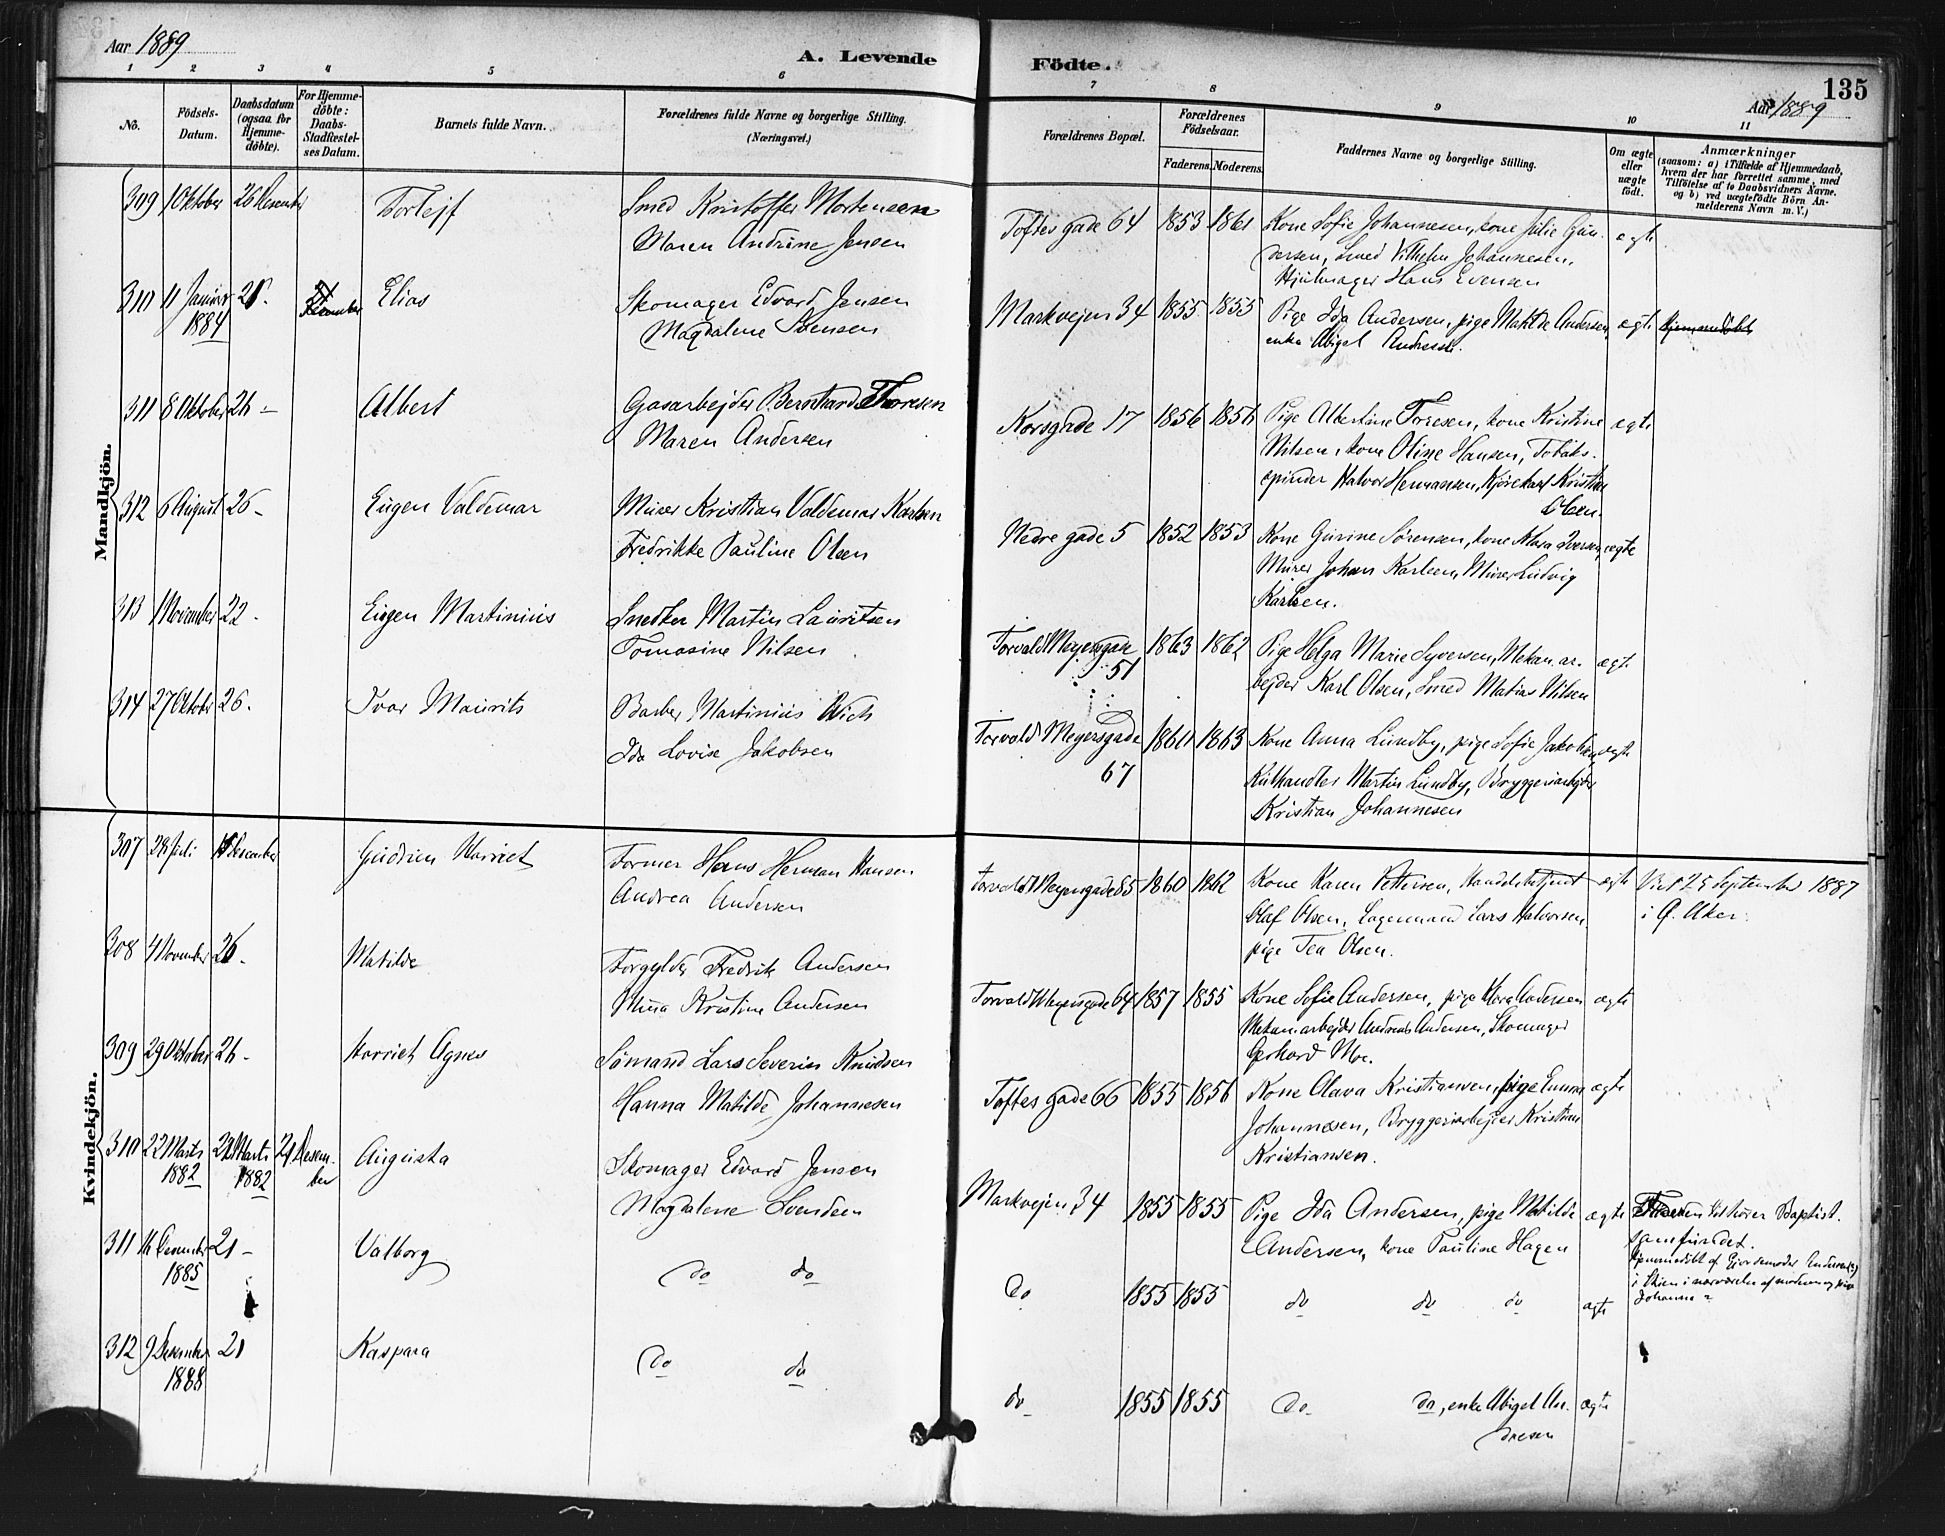 Aar 1889
A. Levende Födte.
135
Aar 1889
1 2 3 4 5 6 7 8 9 10 11
No.
Födsels-Datum.
Daabsdatum (ogsaa for Hjemme-döbte).
For Hjemme-döbte: Daabs-Stadfæstel-ses Datum.
Barnets fulde Navn.
Forældrenes fulde Navne og borgerlige Stilling.
(Næringsvei.)
Forældrenes Bopæl.
Forældrenes Födselsaar.
Faderens. Moderens.
Faddernes Navne og borgerlige Stilling.
Om ægte eller uægte födt.
Anmærkninger
(saasom: a) i Tilfælde af Hjemmedaab,
hvem der har forrettet samme, med
Tilföielse af to Daabsvidners Navne,
og b) ved uægtefödte Börn An-
melderens Navn m. V.)
Mandkjön.
309 1 Oktober 26 Desember Torlejf Smed Kristoffer Mortensen
Maren Andrine Jensen
Toftes gade 64 1853 1861 Kone Sofie Johannesen, kone Julie Gun- ægte
dersen, Smed Vilhelm Johannesen,
Hjulmager Hans Evensen
310 11 Januar 1884 21. Desember Elias Skomager Edvard Jensen
Magdalene Svensen
Markvejen 34 1855 1855 Pige Ida Andersen, pige Matilde Andersen, ægte Hjemmedöbt
enke Abigel Andresen.
311 8 Oktober 26 - Albert Gasarbejder Bernhard Thoresen
Maren Andersen
Korsgade 17 1856 1856 Pige Albertine Toresen, kone Kristine ægte
Nilsen, kone Oline Hansen, Tobaks-
spinder Halvor Hermansen, Kjörekarl Kristian
Olsen.
312 6 August 26 - Eugen Valdemar Murer Kristian Valdemar Karlsen
Fredrikke Pauline Olsen
Nedre gade 5 1852 1853 Kone Gurine Sörensen, kone Klara Iversen, ægte
Murer Johan Karlsen, Murer Ludvig
Karlsen.
313 1 November 22. Eugen Martinius Snedker Martin Lauritsen
Tomasine Nilsen
Torvald Meyersgade 51 1863 1862 Pige Helga Marie Syversen, Mekan. ar- ægte
bejder Karl Olsen, Smed Matias Nilsen
314 27 Oktober 26. Ivar Maurits Barber Martinius Wich
Ida Lovise Jakobsen
Torvald Meyersgade 67 1863 Kone Anna Lundby, pige Sofie Jakobsen, ægte
Kulhandler Martin Lundby, Bryggeriarbejder
Kristian Johannesen
Kvindekjön.
307 28 Juli Desember Gudrun Harriet Former Hans Herman Hansen
Andrea Andersen
Torvald Meyersgade 85 1860 1862 Kone Karen Pettersen, Handelsbetjent ægte Viet 25 September 1887
Olaf Olsen, Lagermand Lars Halvorsen, i G. Aker
pige Tea Olsen.
308 4 November 26 - Matilde Forgylder Fredrik Andersen
Mina Kristine Andersen
Torvald Meyersgade 64 1857 1855 Kone Sofie Andersen, pige Klara Andersen ægte
Mekan. arbejder Andreas Andersen, Skomager
Gerhard Moe.
309 29 Oktober 26 - Harriet Agnes Sömand Lars Severin Knudsen
Hanna Matilde Johannesen
Toftes gade 66 1855 1856 Kone Olava Kristiansen, pige Emma ægte
Johannesen, Bryggeriarbejder Kristian
Kristiansen.
310 22 Marts 1882 Marts 1882 21 Desem-ber Augusta Skomager Edvard Jensen
Magdalene Svendsen
Markvejen 34 1855 1855 Pige Ida Andersen, pige Matilde ægte Faderen tilhörer Baptist-
Andersen, kone Pauline Hagen samfundet.
Hjemmedöbt af Gjordemoder Andersen (?)
i Skien i nærværelse af moderen og
Johanne
311 Desember 1885 21 - Valborg do do
do 1855 1855 do do do ægte
312 9 Desember 1888 21 Kaspara do do
do 1855 1855 do do, enke Abigel An- ægte
dresen